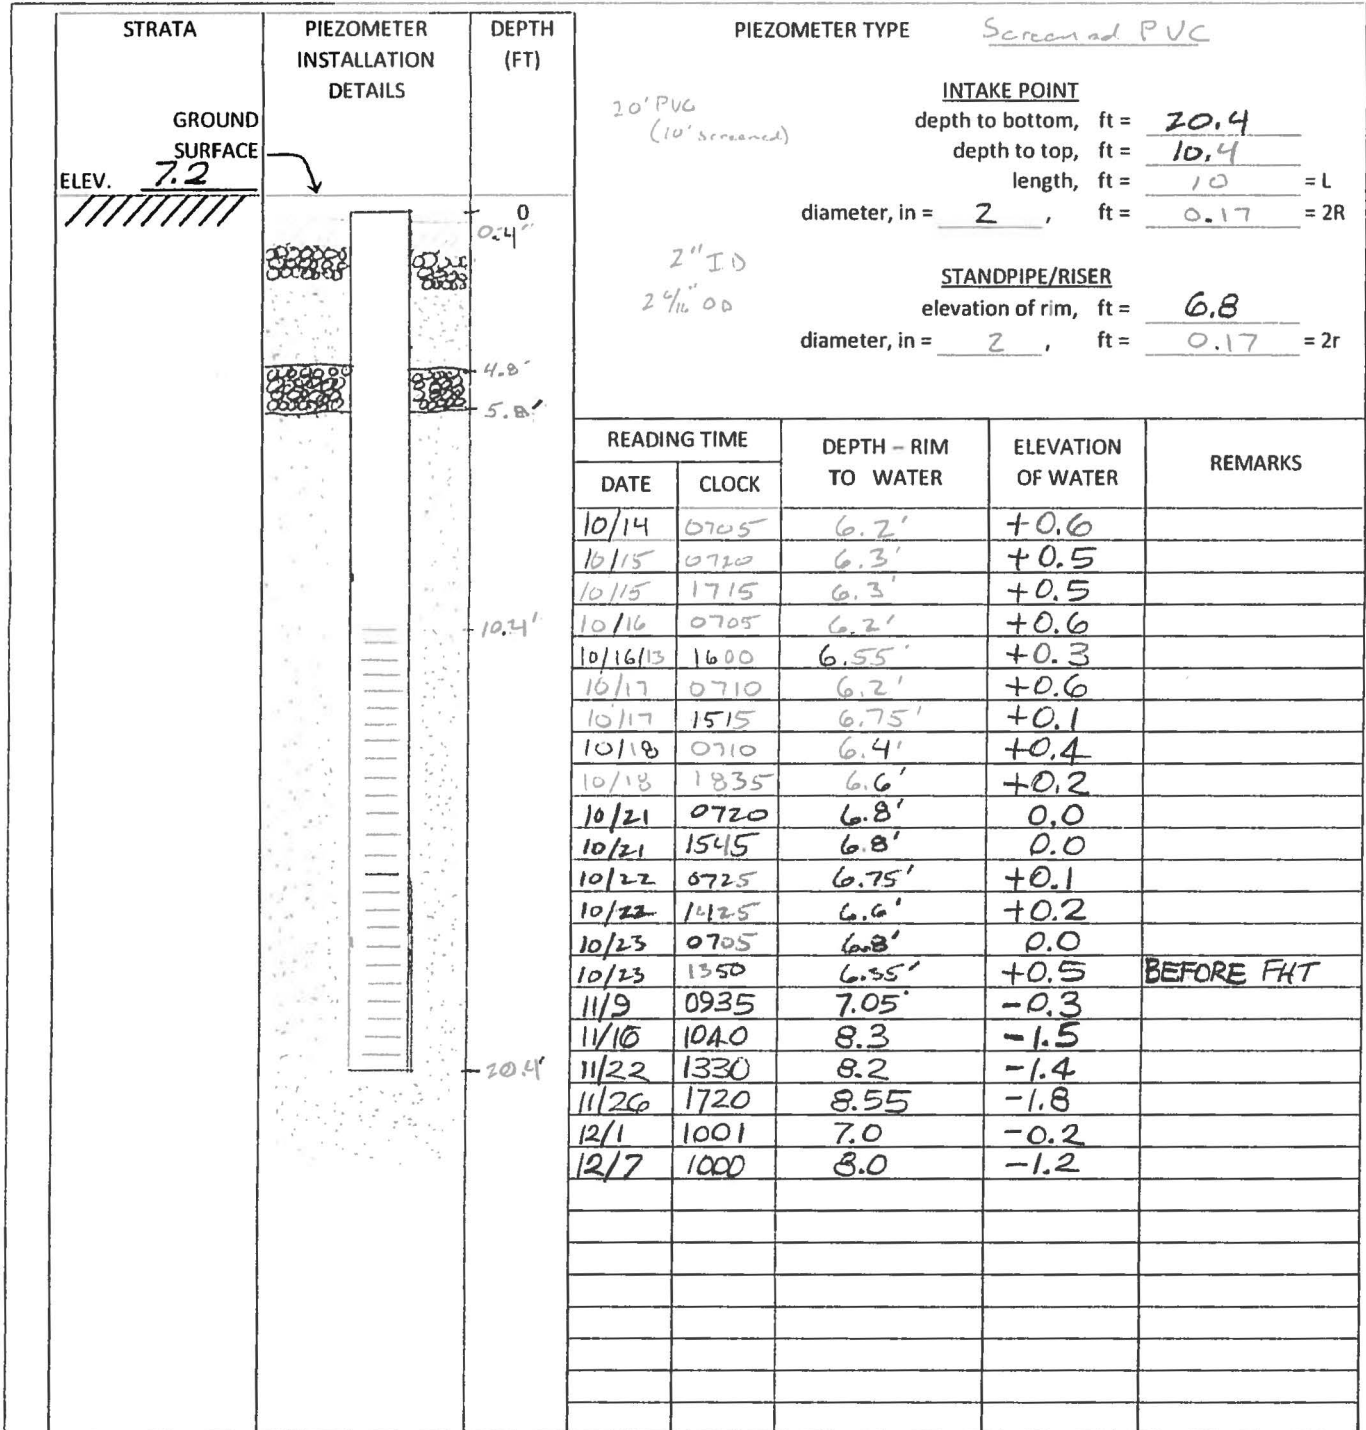 STRATA
PIEZOMETER
INSTALLATION
DETAILS
DEPTH
(FT)
GROUND
SURFACE
ELEV. 7.2
0
0.4'
4.8'
5.8'
10.4'
20.4'
PIEZOMETER TYPE Screened PVC
20' PVC
(10' screened)
INTAKE POINT
depth to bottom, ft = 20.4
depth to top, ft = 10.4
length, ft = 10 = L
diameter, in = 2 , ft = 0.17 = 2R
2" ID
2 4/16" OD
STANDPIPE/RISER
elevation of rim, ft = 6.8
diameter, in = 2 , ft = 0.17 = 2r
READING TIME
DATE CLOCK
DEPTH – RIM
TO WATER
ELEVATION
OF WATER
REMARKS
10/14 0705 6.2' +0.6
10/15 0720 6.3' +0.5
10/15 1715 6.3' +0.5
10/16 0705 6.2' +0.6
10/16/13 1600 6.55' +0.3
10/17 0710 6.2' +0.6
10/17 1515 6.75' +0.1
10/18 0710 6.4' +0.4
10/18 1835 6.6' +0.2
10/21 0720 6.8' 0.0
10/21 1545 6.8' 0.0
10/22 0725 6.75' +0.1
10/22 1425 6.6' +0.2
10/23 0705 6.8' 0.0
10/23 1350 6.35' +0.5 BEFORE FHT
11/9 0935 7.05' -0.3
11/16 1040 8.3 -1.5
11/22 1330 8.2 -1.4
11/26 1720 8.55 -1.8
12/1 1001 7.0 -0.2
12/7 1000 8.0 -1.2